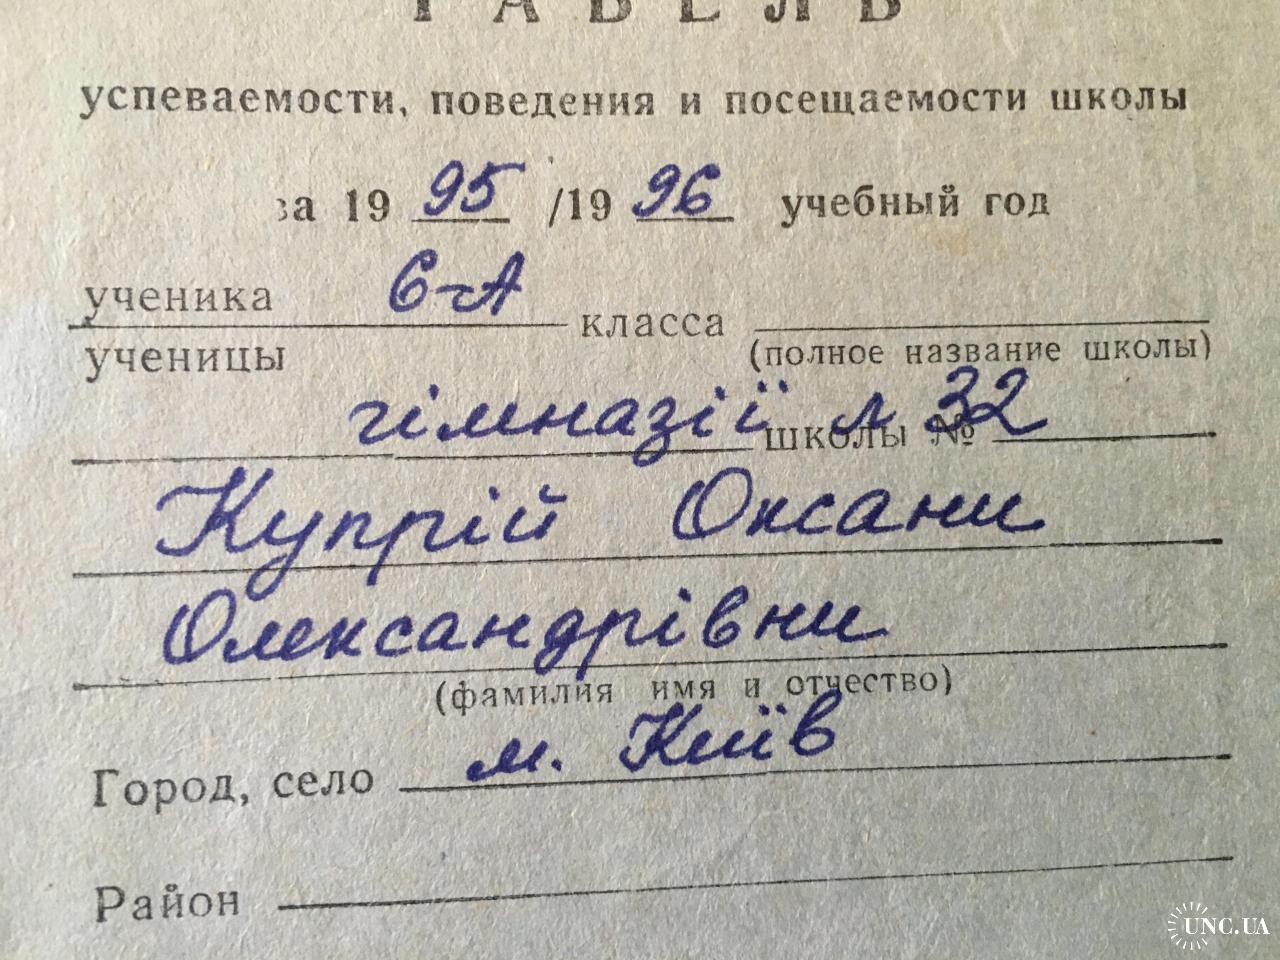 ТАБЕЛЬ
успеваемости, поведения и посещаемости школы
за 19 95 /19 96 учебный год
ученика 6-А класса
ученицы (полное название школы)
гімназії школы № 32
Купрій Оксани
Олександрівни
(фамилия имя и отчество)
Город, село м. Київ
Район
UNC.UA